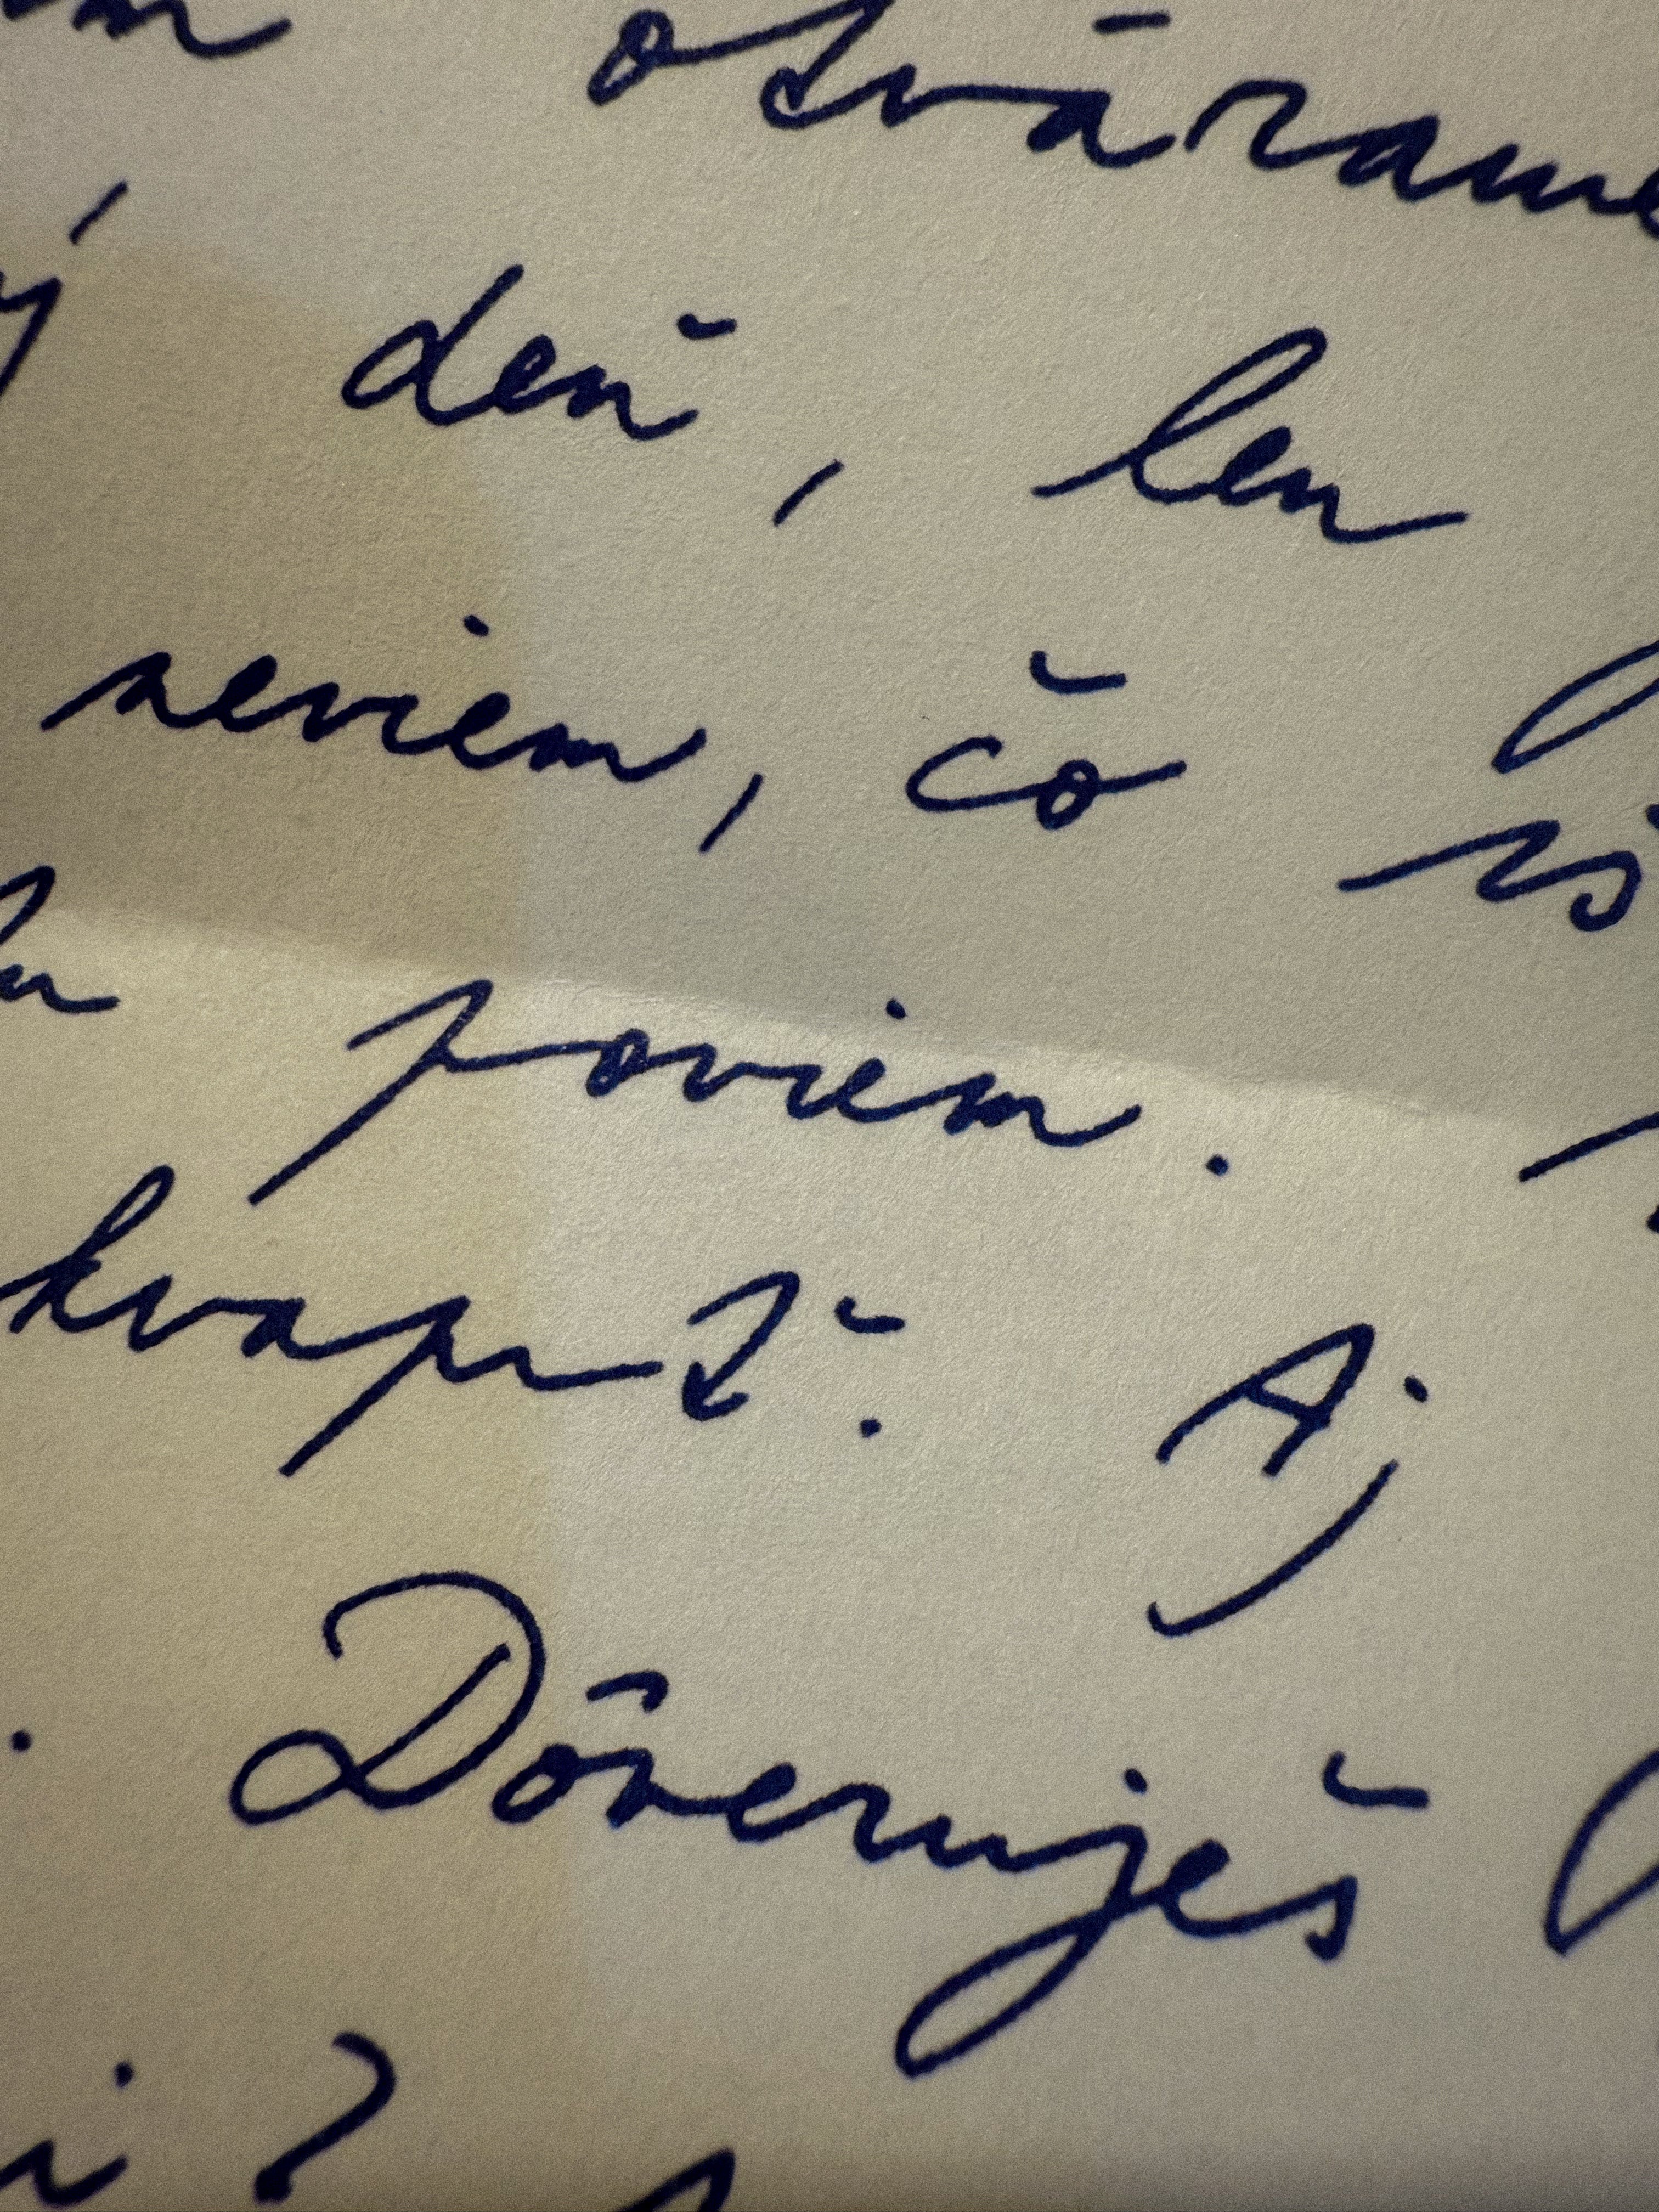 otvárame
deň, len
neviem, čo
poviem.
kvapiť. Aj
Dôveruješ
i?